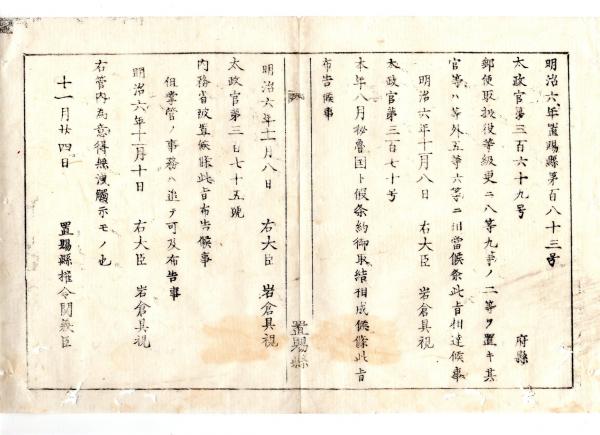 明治六年置賜縣第百八十三号
太政官第三百六十九号
府縣
郵便取扱役等級更ニ八等九等ノ二等ヲ置キ其
官等ハ等外五等六等ニ相當候条此旨相達候事
明治六年十一月八日 右大臣 岩倉具視
太政官第三百七十号
本年八月秘魯国ト假条約御取結相成候條此旨
布告候事
置賜縣
明治六年十一月八日 右大臣 岩倉具視
太政官第三百七十五號
内務省被置候條此旨布告候事
但掌管ノ事務ハ追テ可及布告事
明治六年十一月十日 右大臣 岩倉具視
右管内為意得無洩觸示モノ也
十一月廿四日 置賜縣權令関義臣